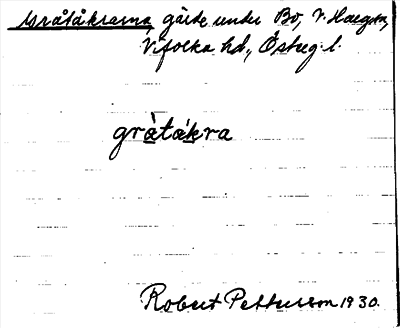 Gråtåkrarna, gärde under Bo, V. Harg sn,
Vifolka hd., Östergl.
gråtåkra
Robert Pettersson 1930.